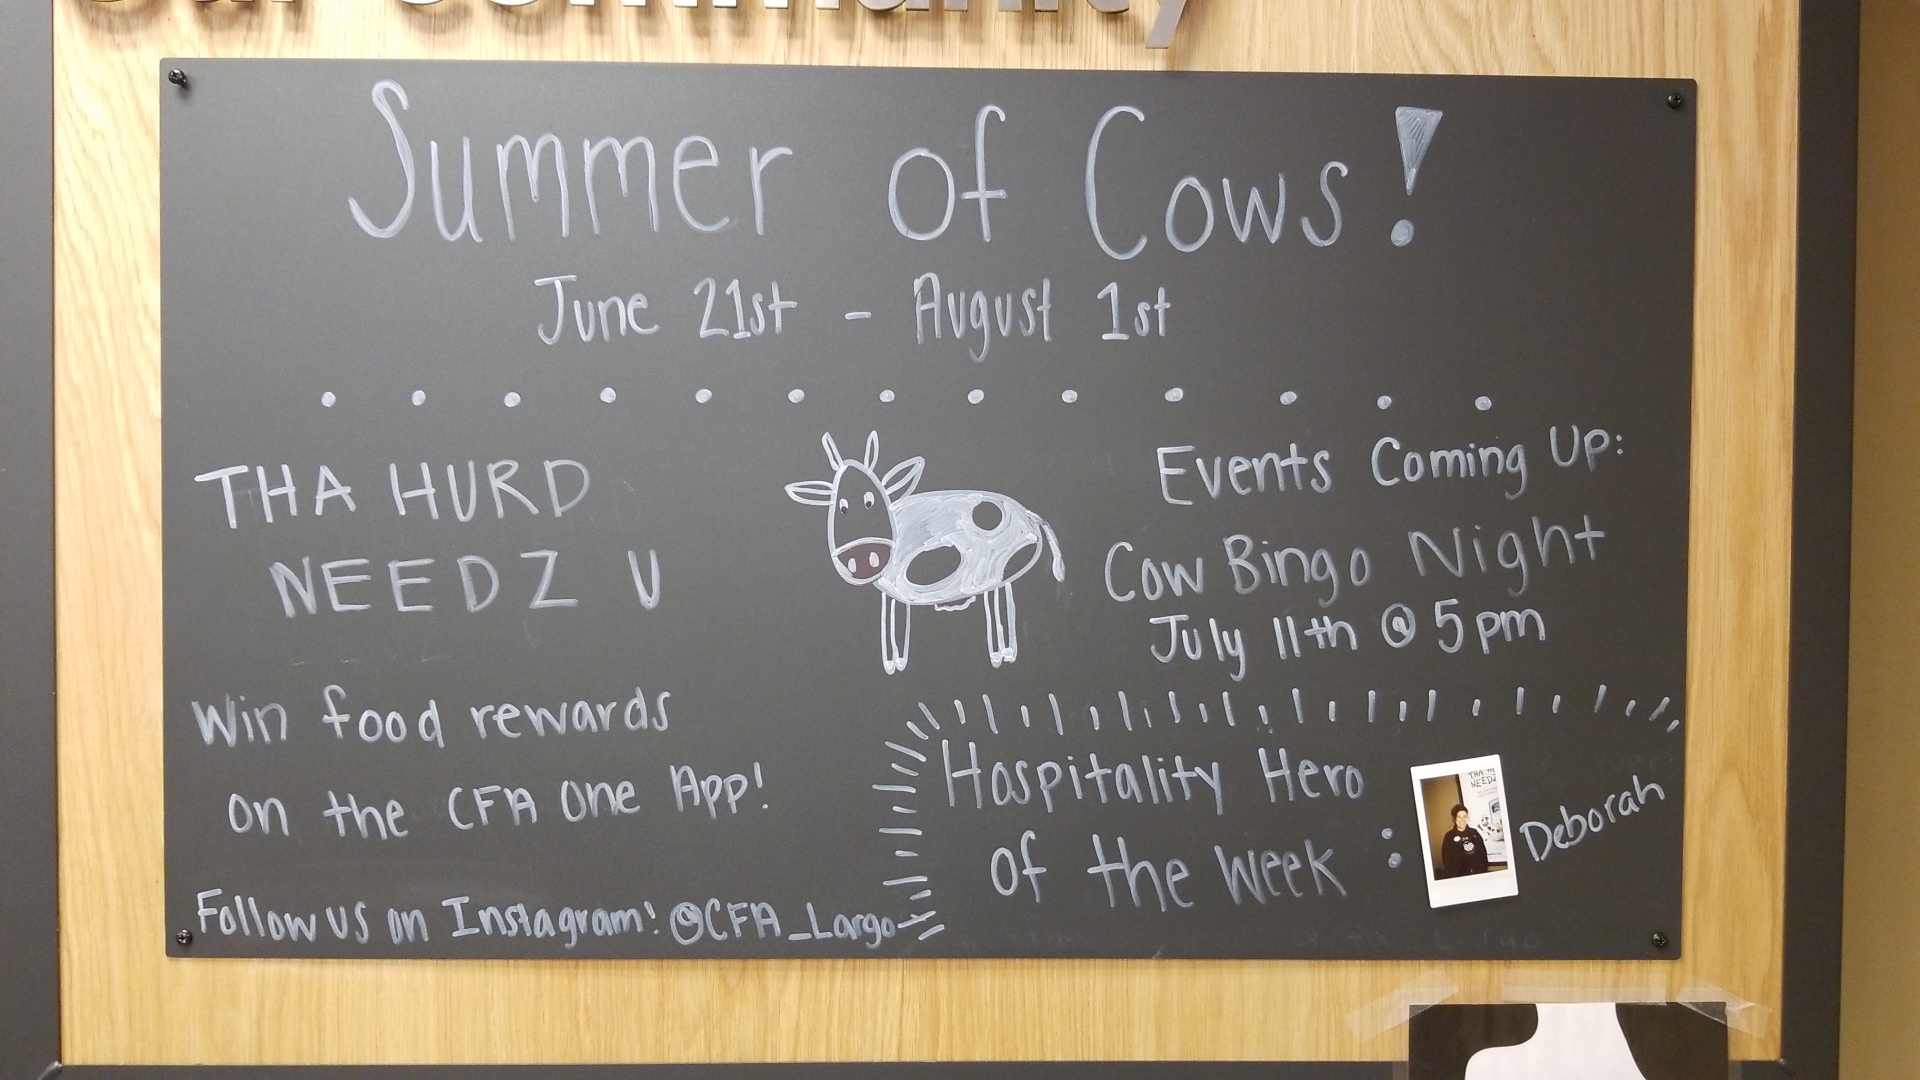 our community
Summer of Cows!
June 21st - August 1st
THA HURD
NEEDZ U
Win food rewards
on the CFA One App!
Follow us on Instagram! @CFA_Largo
Events Coming Up:
Cow Bingo Night
July 11th @ 5pm
Hospitality Hero
of the Week :
Deborah